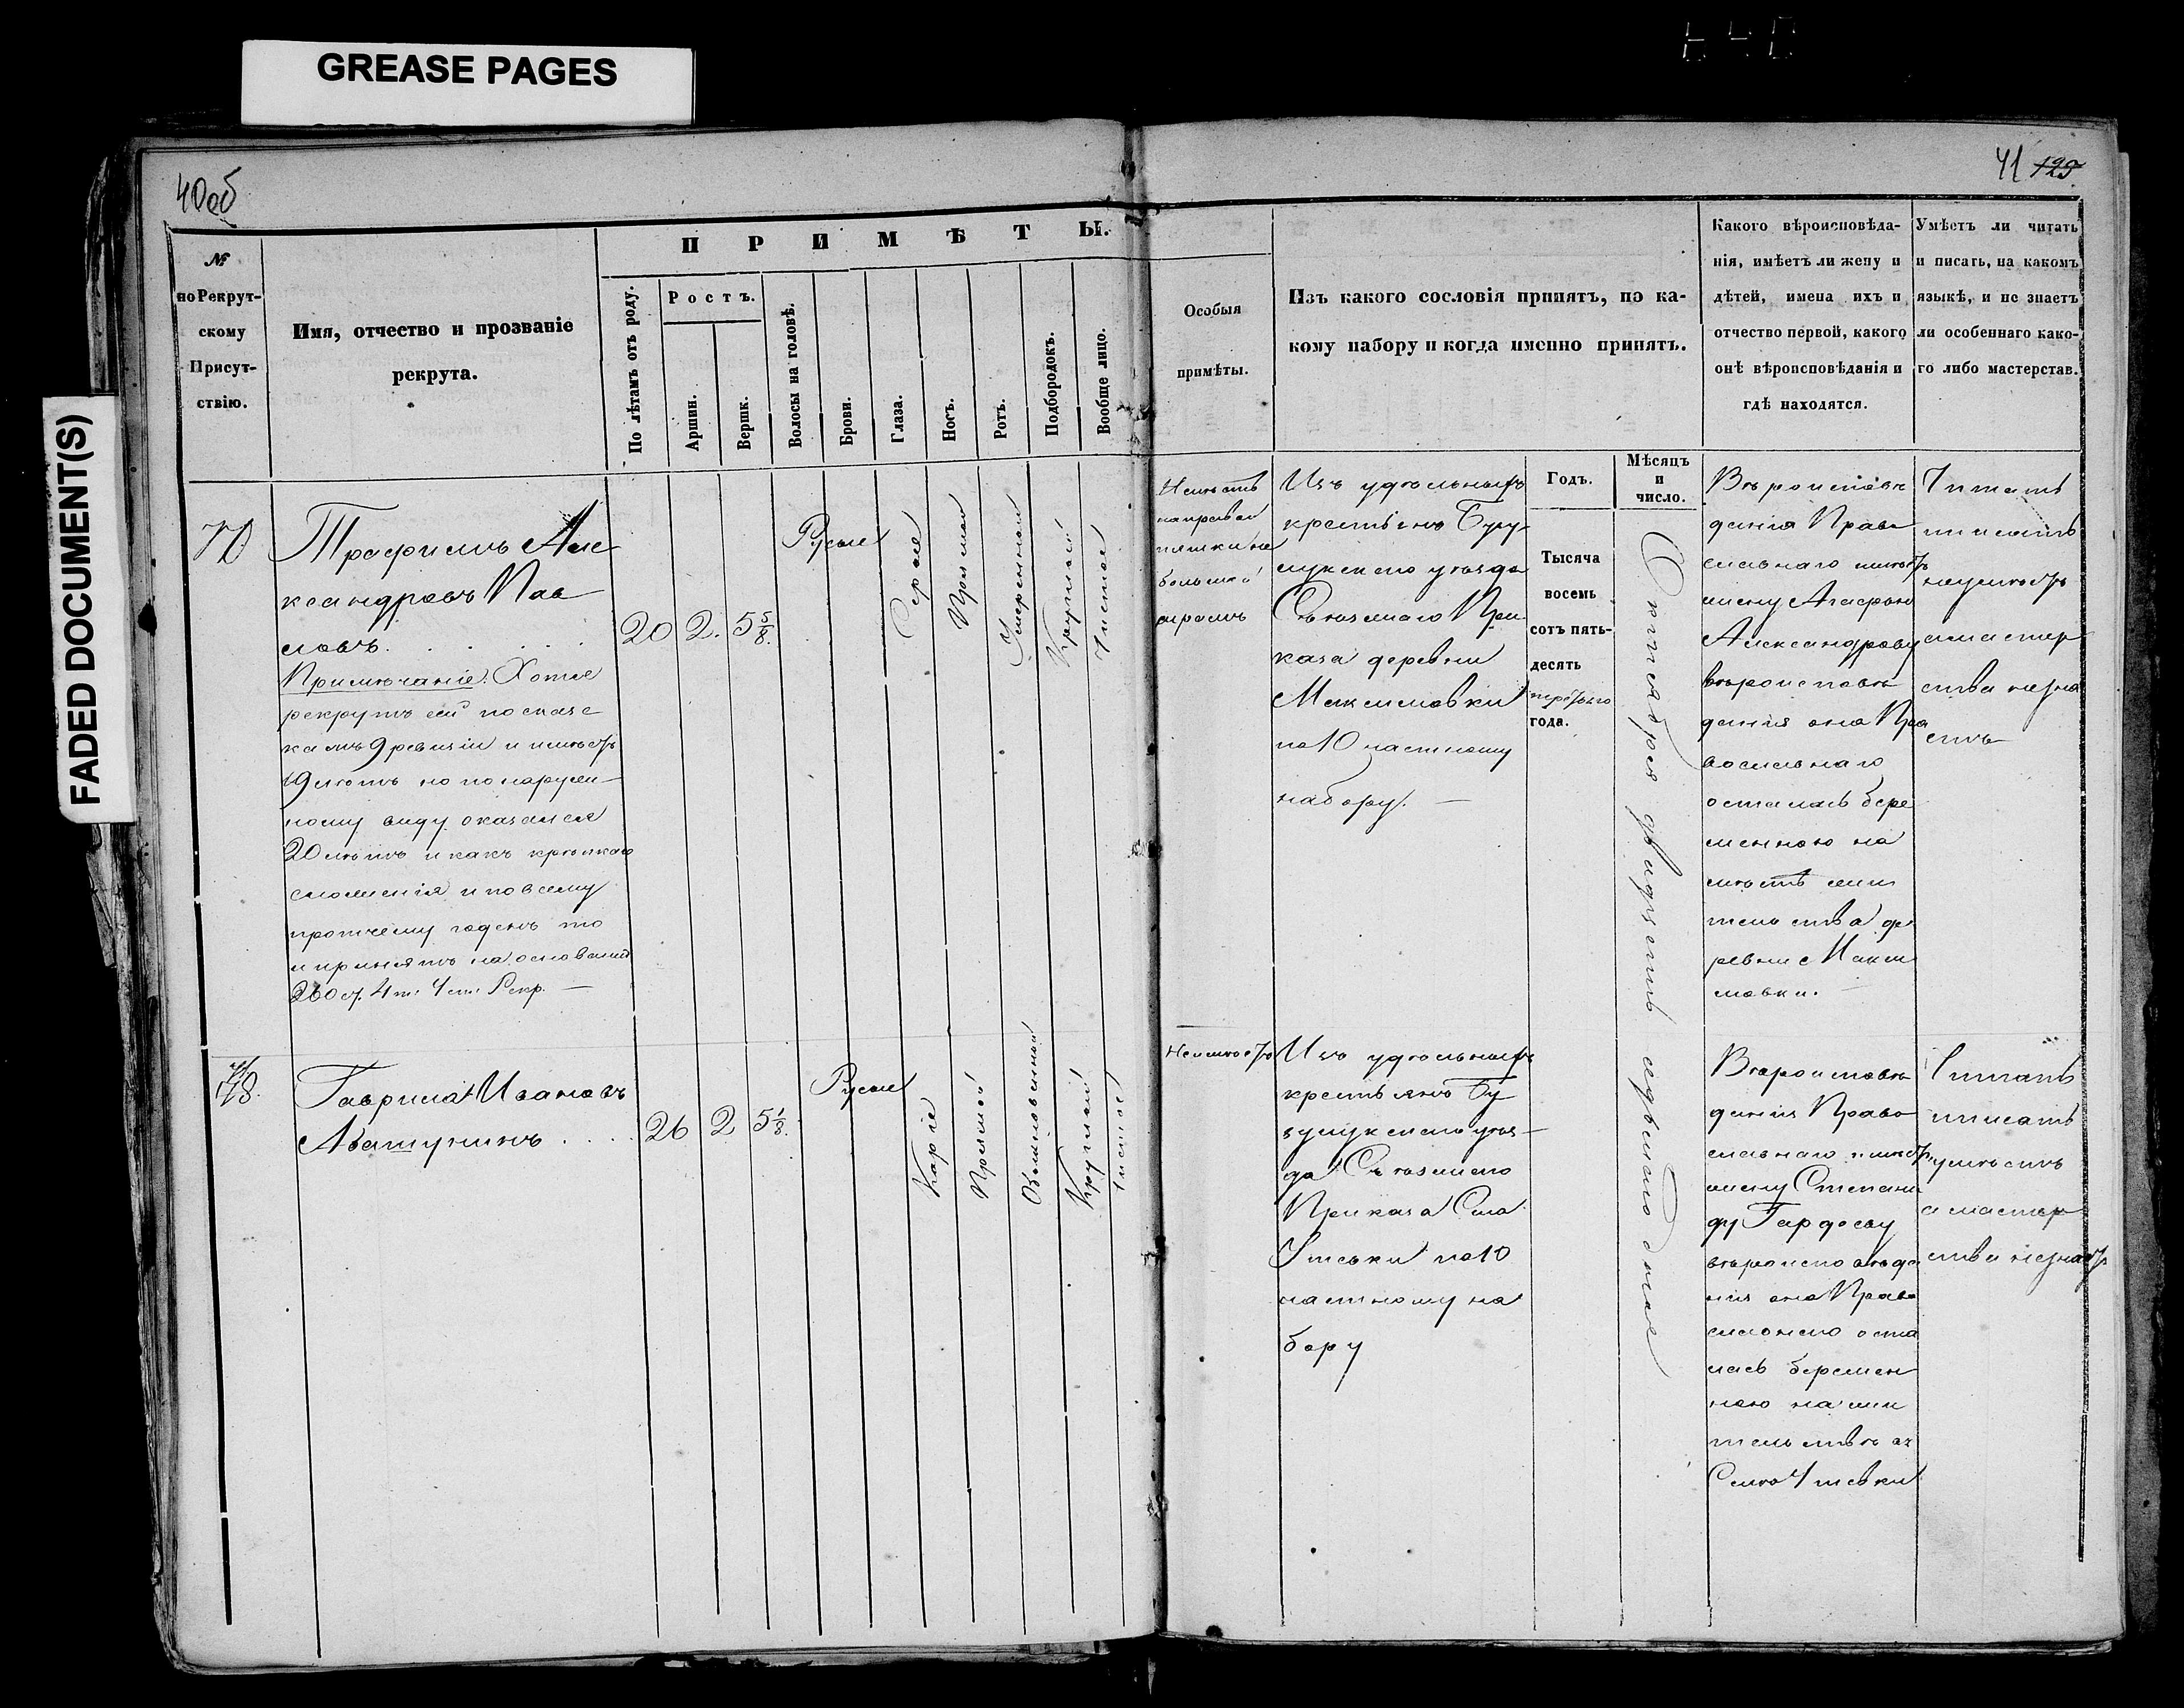 GREASE PAGES
FADED DOCUMENT(S)
40об
41 125
№
по Рекрут-
скому
Присут-
ствію.
Имя, отчество и прозваніе
рекрута.
ПРИМѢТЫ.
По лѣтамъ отъ роду.
Ростъ.
Аршин.
Вершк.
Волосы на головѣ.
Брови.
Глаза.
Носъ.
Ротъ.
Подбородокъ.
Вообще лицо.
Особыя
примѣты.
Изъ какого сословія принятъ, по ка-
кому набору и когда именно принятъ.
Какого вѣроисповѣда-
нія, имѣетъ ли жену и
дѣтей, имена ихъ и
отчество первой, какого
онѣ вѣроисповѣданія и
гдѣ находятся.
Умѣетъ ли читать
и писать, на какомъ
языкѣ, и не знаетъ
ли особеннаго како-
го либо мастерства.
Годъ.
Мѣсяцъ
и
число.
Трафимъ Але
ксандровъ Пав
ловъ
Примѣчаніе. Хотя
рекрутъ сей по сказс
камъ 9 ревизіи и имѣетъ
19 лѣтъ но по наруж
ному виду оказался
20 лѣтъ и какъ крѣпкаго
сложенія и по всему
протчему годенъ то
и принятъ на основаніи
260 ст. 4 т. Рекр.
20
2.
5 5/8.
Русые
Серые
Прямой
Умеренный
Круглый
Чистое
на правой
ляшки не
большой
шрамъ
Изъ удѣльныхъ
крестьянъ Бугу
лукскаго уѣзда
Съезжаго При
каза деревни
Максимовки
по 10 частному
набору.
Тысяча
восемь
сотъ пять-
десять
третьяго
года.
Октября двадцать седьмаго дня
Вѣроисповѣ
данія Право
славнаго имѣетъ
жену Агафью
Александрову
вѣроисповѣ
данія она Пра
вославнаго
осталась бере
менною на
мѣстѣ жи
тельства де
ревни Макси
мовки.
Читать
писать
неумѣетъ
а мастер
ства незна
етъ
Гаврила Ивановъ
26
2
5 1/8.
Русые
Каріе
Прямой
Обыкновенный
Круглый
Чистое
Неимѣетъ
Изъ удѣльныхъ
крестьянъ Бу
зулукскаго уѣз
да Съезжаго
Приказа Села
Утевки по 10
частному на
бору
Вѣроисповѣ
данія Право
славнаго имѣетъ
жену Степани
ду Гордееву
вѣроисповѣда
нія она Право
славнаго оста
лась беремен
ною на жи
тельствѣ въ
Селе Утевки
Читать
писать
умѣетъ
а мастер
ства незнаетъ